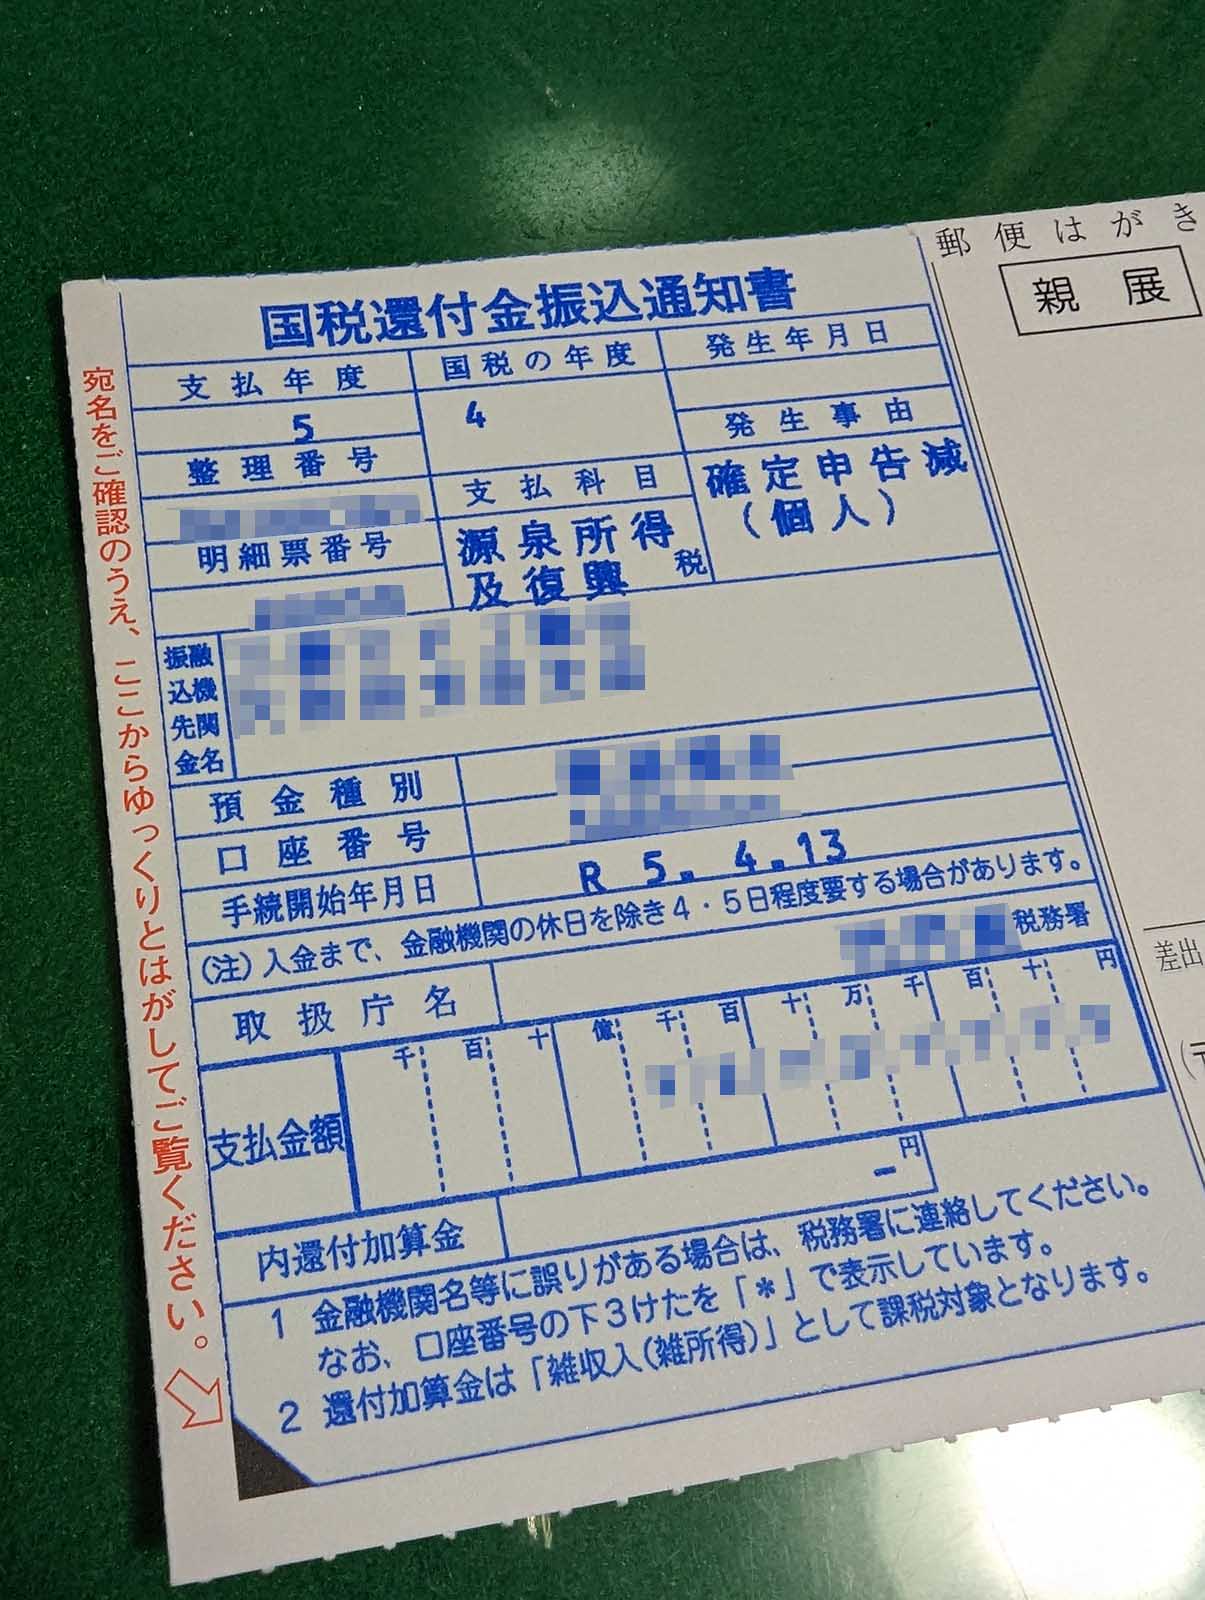 郵便はがき
親展
宛名をご確認のうえ、ここからゆっくりとはがしてご覧ください。
国税還付金振込通知書
支払年度
5
国税の年度
4
発生年月日
発生事由
確定申告減
(個人)
整理番号
支払科目
源泉所得
及復興 税
明細票番号
振込先金融機関名
預金種別
口座番号
手続開始年月日
R 5. 4.13
(注)入金まで、金融機関の休日を除き4・5日程度要する場合があります。
取扱庁名
税務署
支払金額
千 百 十 億 千 百 十 万 千 百 十 円
内還付加算金
円
-
1 金融機関名等に誤りがある場合は、税務署に連絡してください。
なお、口座番号の下3けたを「*」で表示しています。
2 還付加算金は「雑収入(雑所得)」として課税対象となります。
差出